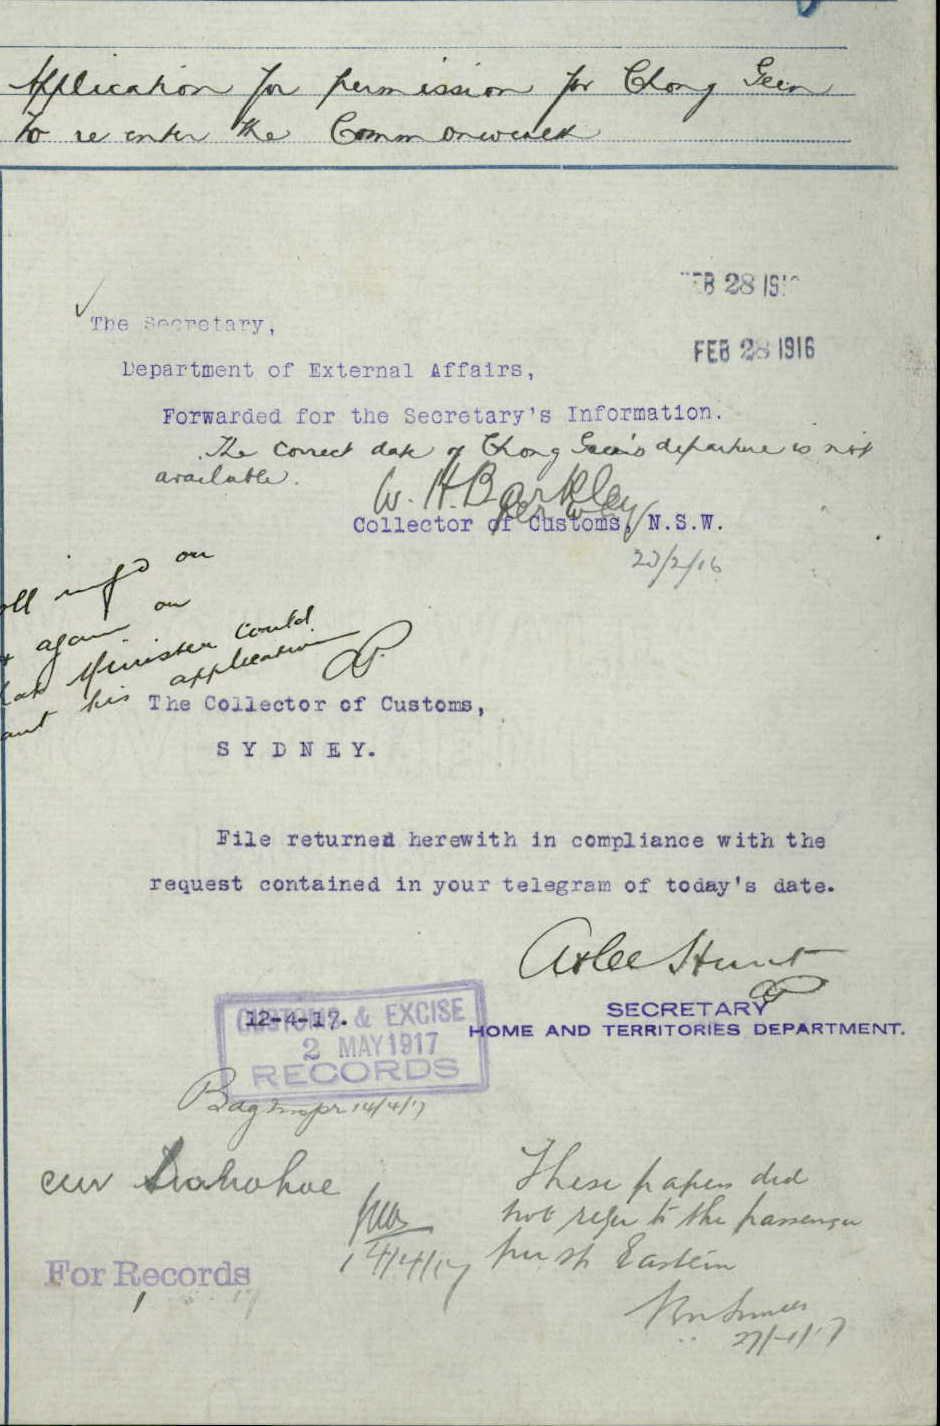 Application for permission for Chong Geen
to re enter the Commonwealth
FEB 28 191
FEB 28 1916
The Secretary,
Department of External Affairs,
Forwarded for the Secretary's Information.
The correct date of Chong Geen's departure is not
available.
W. H. Barkley
Collector of Customs, N.S.W.
/2/16
on
again on
Minister could
his application
The Collector of Customs,
SYDNEY.
File returned herewith in compliance with the
request contained in your telegram of today's date.
Atlee Hunt
SECRETARY
HOME AND TERRITORIES DEPARTMENT.
12-4-17.
CUSTOMS & EXCISE
2 MAY 1917
RECORDS
14/4/17
Donohoe
14/4/17
These papers did
not refer to the passenger
per ss Eastern
For Records